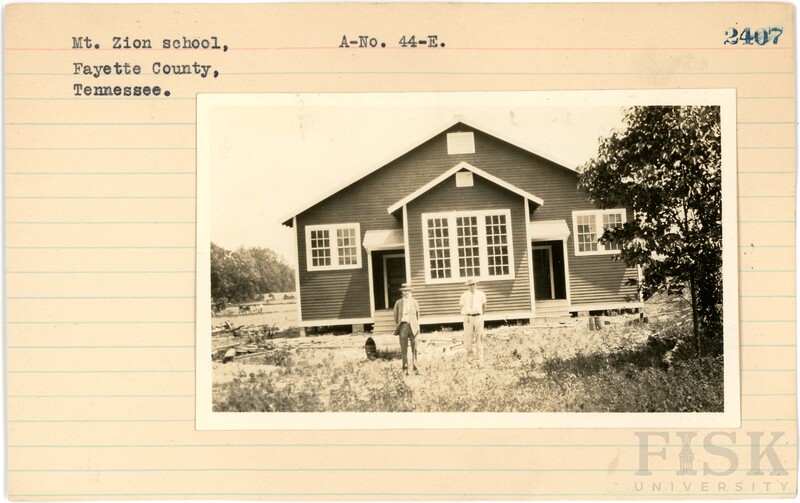 Mt. Zion school,
Fayette County,
Tennessee.
A-No. 44-E.
2407
FISK
UNIVERSITY